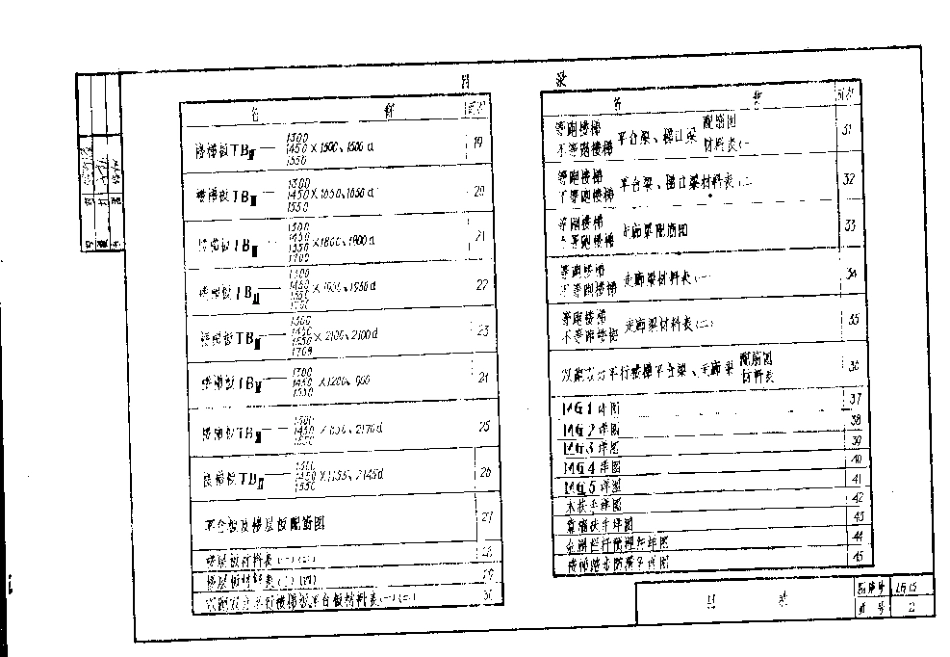 目 录
名 称 页次
楼梯板TBⅢ— 1300 1450 1550 ×1500、1500d 19
楼梯板TBⅢ— 1300 1450 1550 ×1650、1650d 20
楼梯板TBⅢ— 1300 1450 1550 1700 ×1800、1800d 21
楼梯板TBⅢ— 1300 1450 1550 1700 ×1950、1950d 22
楼梯板TBⅢ— 1300 1450 1550 1700 ×2100、2100d 23
楼梯板TBⅢ— 1300 1450 1550 ×1200、 24
楼梯板TBⅢ— 1300 1450 1550 2170d 25
楼梯板TBⅢ— 1300 1450 1550 ×1155、2145d 26
平台板及楼层板配筋图 27
楼层板材料表(一)(二) 28
楼层板材料表(三)(四) 29
双跑双分平行楼梯板平台板材料表(一)(二) 30
名 称 页次
等跑楼梯 不等跑楼梯 平台梁、梯口梁 配筋图 材料表(一) 31
等跑楼梯 不等跑楼梯 平台梁、梯口梁材料表(二) 32
等跑楼梯 不等跑楼梯 走廊梁配筋图 33
等跑楼梯 不等跑楼梯 走廊梁材料表(一) 34
等跑楼梯 不等跑楼梯 走廊梁材料表(二) 35
双跑双分平行楼梯平台梁、走廊梁 配筋图 材料表 36
LMG1详图 37
LMG2详图 38
LMG3详图 39
LMG4详图 40
LMG5详图 41
木扶手详图 42
靠墙扶手详图 43
金属栏杆预埋件详图 44
楼梯踏步防滑条详图 45
目 录
图集号 L6 15
页 号 2